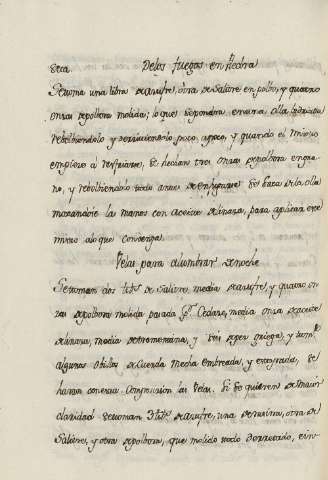 seca. De los fuegos en Piedra
Se toma una libra de azufre, otra de Salitre en polbo, y quatro
onzas de polbora molida; lo que se pondra en una olla
rebolbiendolo y desaciendolo poco, a poco, y quando el mixto
empieze a resfriarse, se hechan tres onzas de polbora en gra-
no, y rebolbiendolo todo antes de enfriarse se saca de la olla
manandose las manos con aceite de linaza, para aplicar este
mixto a lo que convenga.
Velas para alumbrar de noche
Se toman dos lib.s de Salitre, media de azufre, y quatro on-
zas de polbora molida, pasada p.r Cedazo, media onza de aceite
de linaza, media de tromentina, y seis de pez griega, y tam.n
algunas de Cuerda mecha embreada, y
haran con esta Composicion las Velas. Si se quieren de maior
claridad se toman 3 lib.s de azufre, una de resina, otra de
Salitre, y otra de polbora, que molido todo derretido, sin-